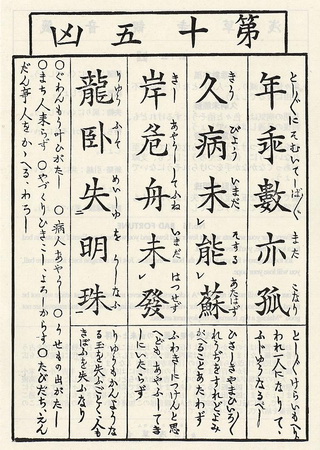 第十五凶
年乖數亦孤
としくにけらいもへり
われ一人になりて、
ふじゆうなるべし
久病未能蘇
きう びよう いまだ そする あたはず
ひさしきやまひいろく
れうぢをすれどよみ
がへることあたわず
岸危舟未發
きし あやうしてふね いまだ はつせず
ふねきしにつけんと思
へども、あやふしてき
しにいたらず
龍卧失明珠
りゆう ふして めいしゆを うしなふ
りゆうもかんような
る玉を失ふごとく、人も
を失ふなり
〇ぐわんもう叶ひがたし 〇病人あやうし 〇うせもの出がたし
〇まち人来らず 〇やづくりひきこし、よろしからず〇たびだち、えん
だん等人をかゝへる、わろし